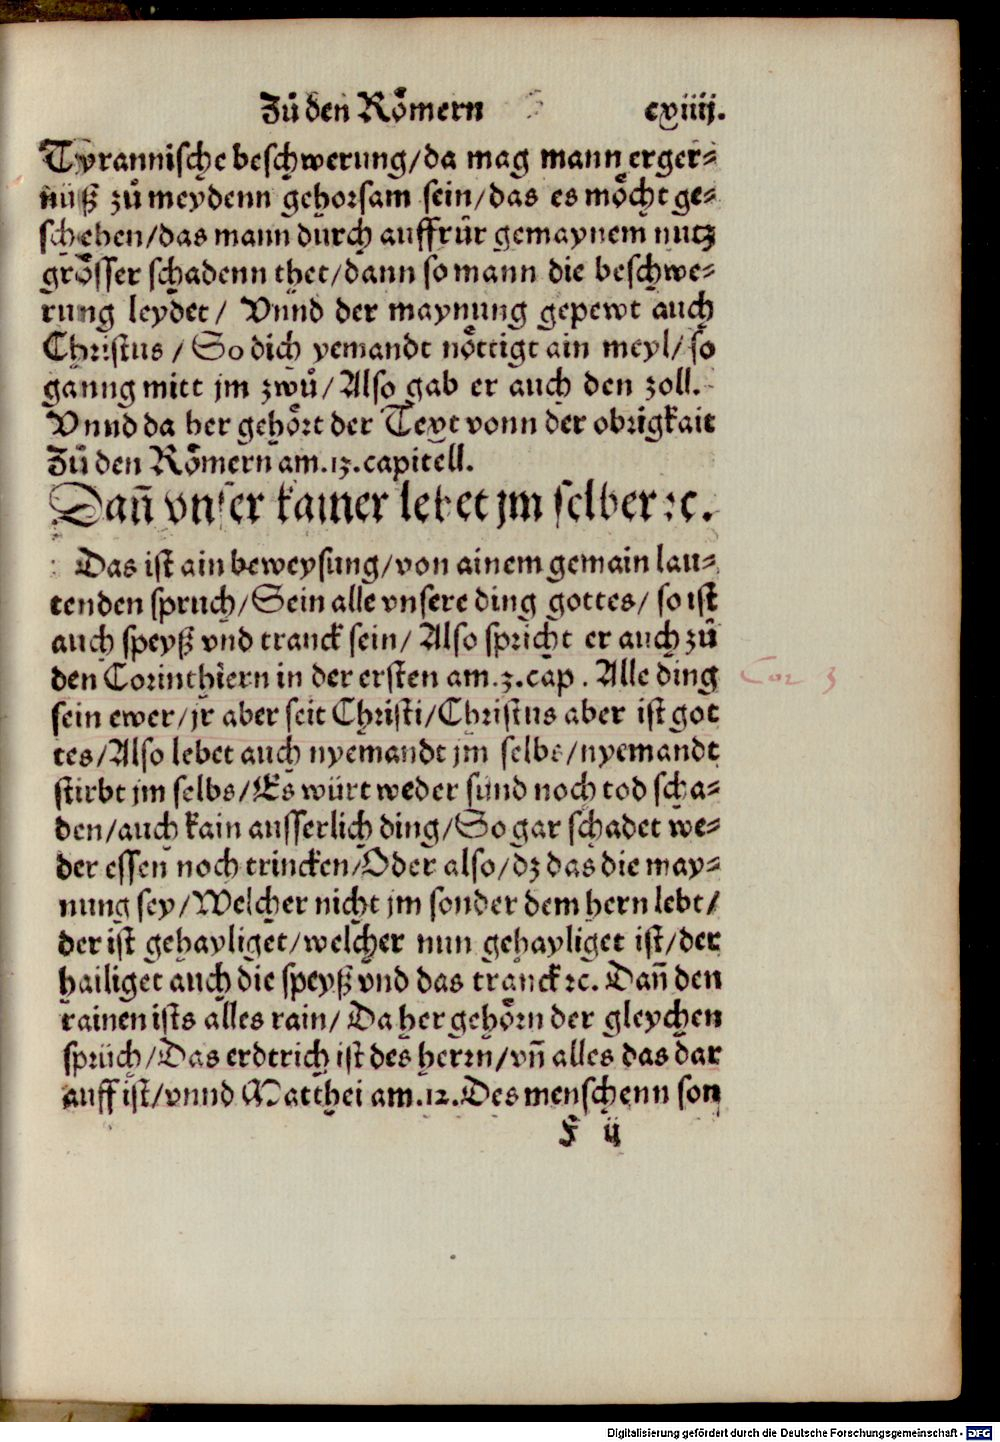 Zů den Rőmern cxiiij.
Tyrannische beschwerung/da mag mann erger⸗
nüß zů meydenn gehorsam sein/das es mőcht ge⸗
schehen/das mann durch auffrůr gemaynem nutz
grősser schadenn thet/dann so mann die beschwe⸗
rung leydet/ Vnnd der maynung gepewt auch
Christus / So dich yemandt nőttigt ain meyl/ so
ganng mitt jm zwů/ Also gab er auch den zoll.
Vnnd da her gehőrt der Text vonn der obrigkait
Zů den Rőmern am.13.capitell.
Dañ vnser kainer lebet jm selber ꝛc.
Das ist ain beweysung/von ainem gemain lau⸗
tenden spruch/Sein alle vnsere ding gottes/ so ist
auch speyß vnd tranck sein/ Also spricht er auch zů
den Corinthiern in der ersten am.3.cap. Alle ding
sein ewer/jr aber seit Christi/Christus aber ist got
tes/Also lebet auch nyemandt jm selbs/nyemandt
stirbt jm selbs/Es würt weder sünd noch tod scha⸗
den/auch kain ausserlich ding/So gar schadet we⸗
der essen noch trincken/Oder also/dz das die may⸗
nung sey/Welcher nicht jm sonder dem hern lebt/
der ist gehayliget/welcher nun gehayliget ist/der
hailiget auch die speyß vnd das tranck ꝛc. Dañ den
rainen ists alles rain/ Da her gehőrn der gleychen
sprüch/Das erdtrich ist des herrn/vñ alles das dar
auff ist/vnnd Matthei am.12.Des menschenn son
F ij
Cor 3
Digitalisierung gefördert durch die Deutsche Forschungsgemeinschaft - DFG